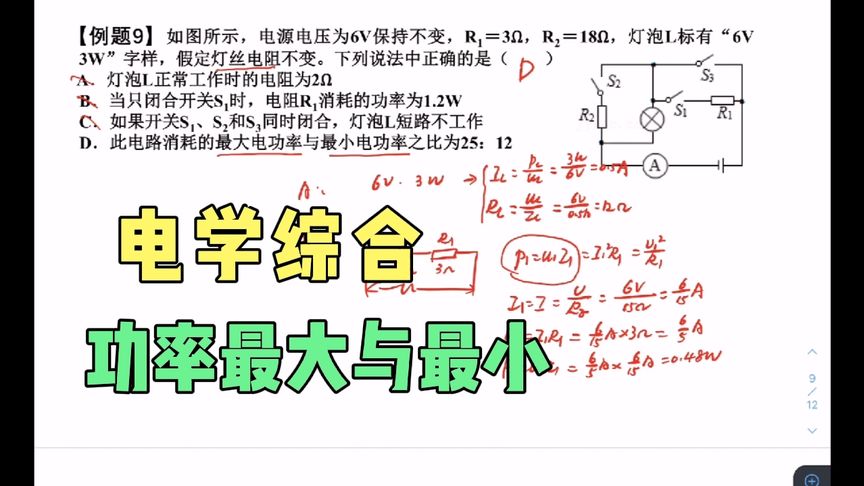 【例题9】如图所示，电源电压为6V保持不变，R₁=3Ω，R₂=18Ω，灯泡L标有“6V
3W”字样，假定灯丝电阻不变。下列说法中正确的是（ D ）
A、灯泡L正常工作时的电阻为2Ω
B、当只闭合开关S₁时，电阻R₁消耗的功率为1.2W
C、如果开关S₁、S₂和S₃同时闭合，灯泡L短路不工作
D．此电路消耗的最大电功率与最小电功率之比为25：12
S₂
S₃
R₂
S₁
R₁
A
A:
6V·3W
→
=3W/6V=0.5A
=6V/0.5A=12Ω
电学综合
R₁
3Ω
P₁=U₁I₁=I₁²R₁=U₁²/R₁
I₁=I=U/R=6V/15Ω=6/15A
=I₁R₁=6/15A×3Ω=6/5A
功率最大与最小
=6/5A×6/15A=0.48W
9
/
12